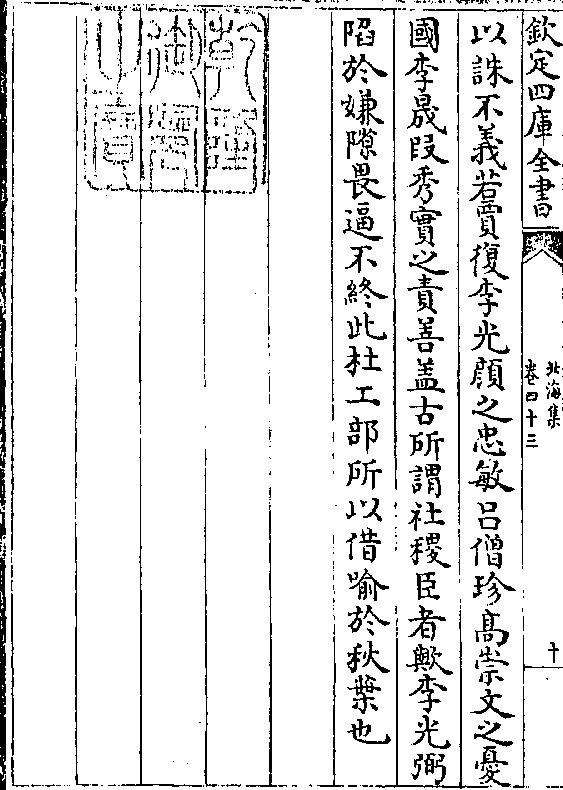 欽定四庫全書
北海集
卷四十三
十
以誅不義若賈復李光顔之忠敏吕僧珍髙崇文之憂
國李晟段秀實之責善盖古所謂社稷臣者歟李光弼
陷於嫌隙畏逼不終此杜工部所以借喻於秋葉也
乾隆
御覽
之寶